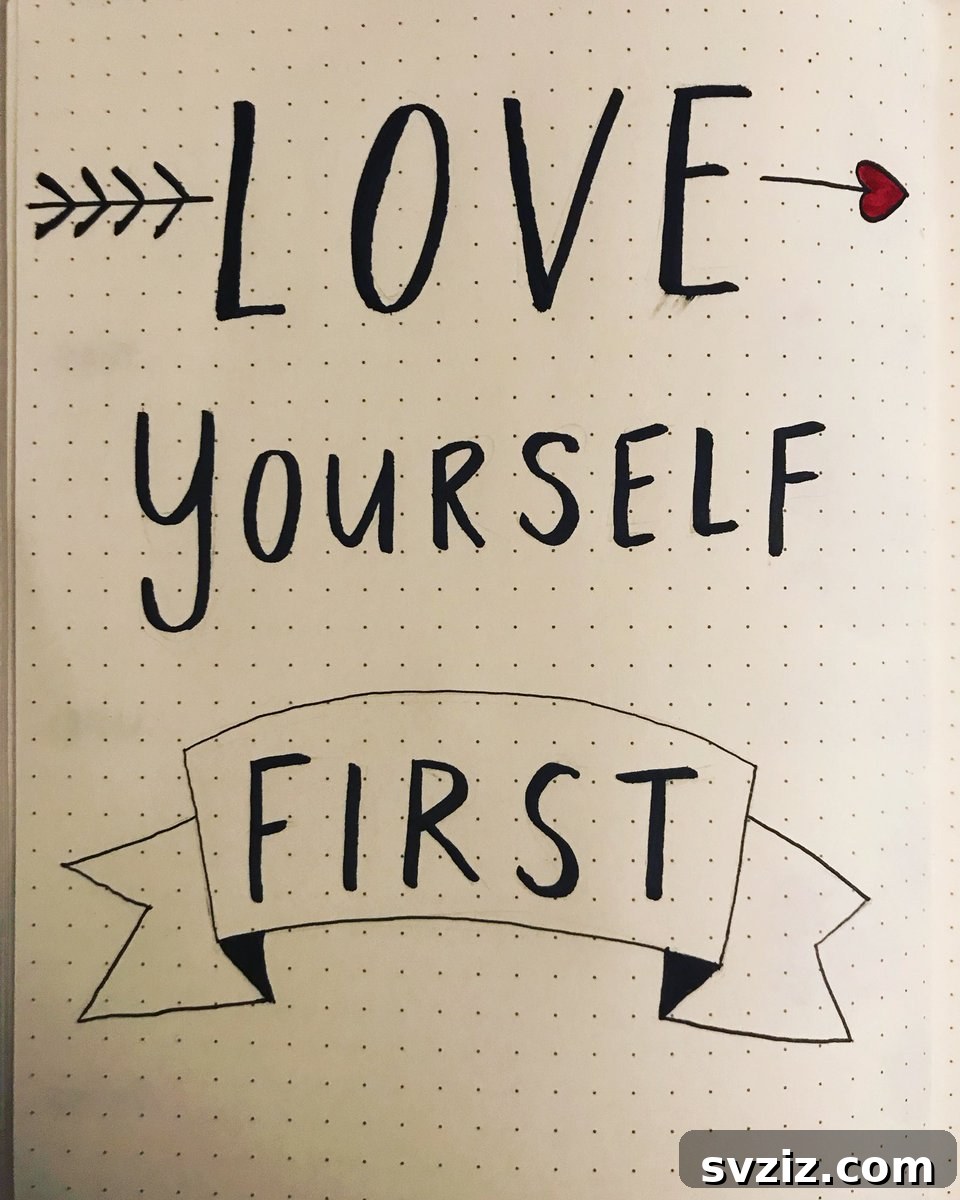 LOVE
yOURSELF
FIRST
svziz.com